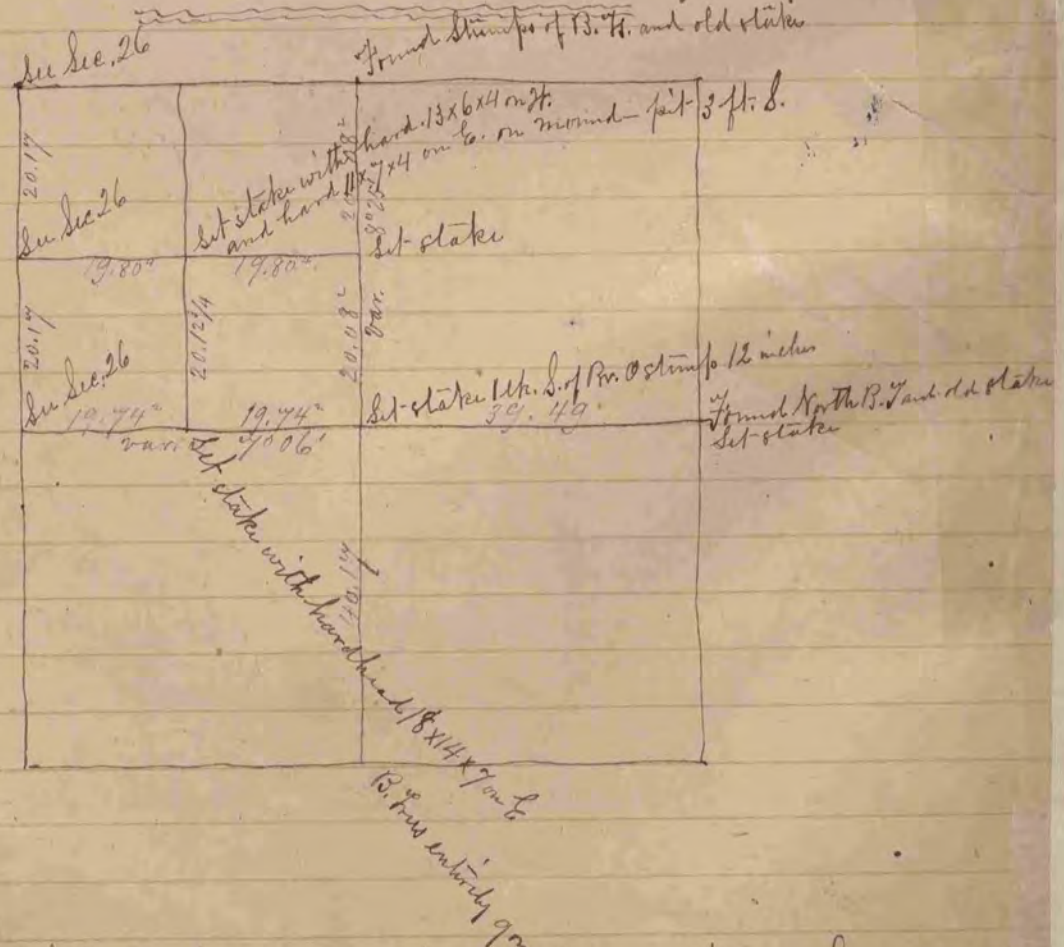 See Sec. 26
Found Stumps of B. Ts. and old stake
20.17
Set stake with hard. 13x6x4 on
and hard 11x7x4 on E. on mound - pit 3 ft. S.
20.18²
8°25'
See Sec 26
Set stake
19.80²
19.80²
20.17
20.12¼
20.18²
Var.
See Sec. 26
Set stake 1 lk. S. of Br. O stump 12 inches
19.74²
19.74²
39.49
Found North B. T and old stake
Set stake
var. 7°06'
Set stake with hardhead 18x14x7 on E
40.17
B. Trees entirely